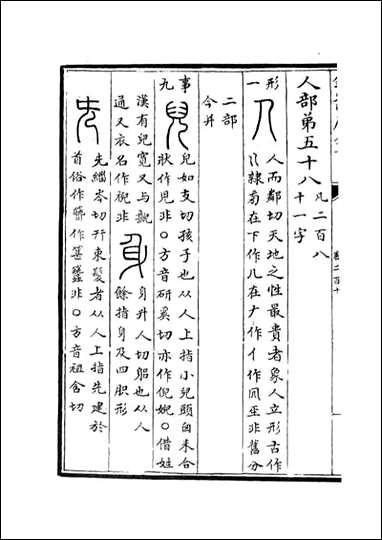 人部第五十八 凡二百八十一字
人 人而鄰切天地之性最貴者象人立形古作
𠆢隸扁在下作儿在𠂇作亻作
二部
今并
形一
兒 兒如支切孩子也从人上指小兒頭囟未合
狀作児非○方音研奚切亦作倪婗○借姓
事九
漢有兒寬又与
通又衣名作裞非
身 身升人切躳也从人
餘指身及四胑形
先 先緇岑切幵束髮者从人上指先建於
首俗作簪作篸簮非○方音祖含切